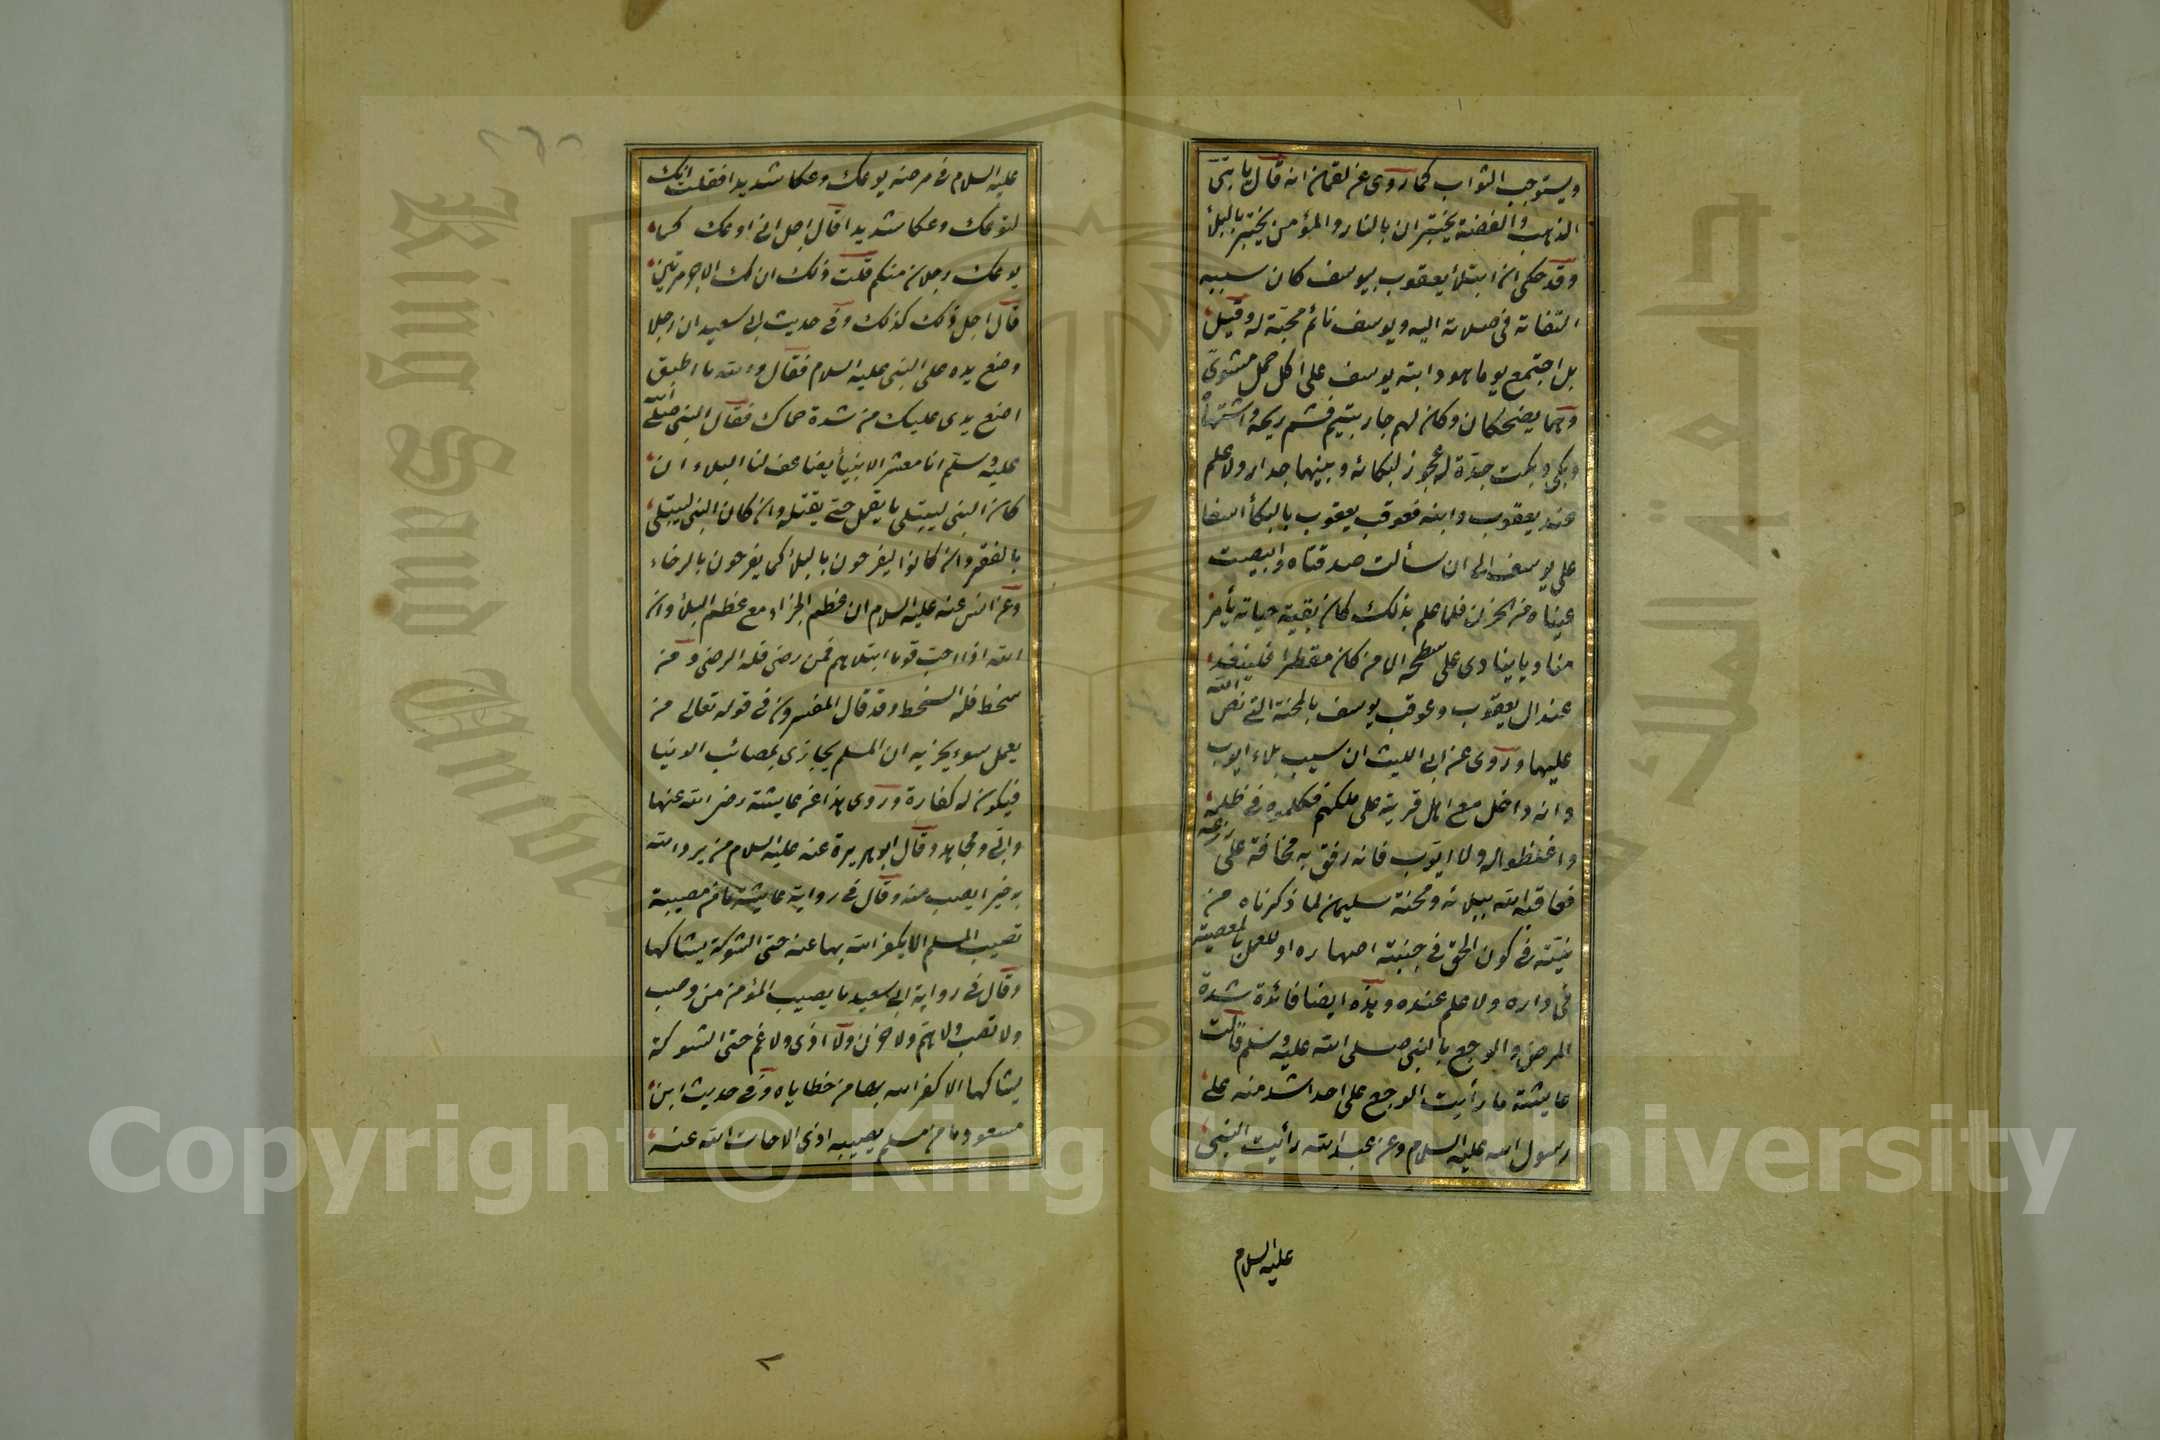 ويستوجب الثواب كما روى عن لقمان انه قال يا بنى
الذهب والفضة يختبران بالنار والمؤمن يختبر بالبلأ
وقد حكى ان ابتلأ يعقوب بيوسف كان سببه
التفاته فى صلاته اليه ويوسف نائم محبّة له وقيل
بل اجتمع يوما هو وابنه يوسف على اكل حمل مشوى
وهما يضحكان وكان لهم جار يتيم فشم ريحه واشتهاه
وبكى وبكت جدّة له عجوز لبكائه وبينهما جدار ولا علم
عند يعقوب وابنه فعوقب يعقوب بالبكأ اسفا
على يوسف الى ان سألت حدقتاه وابيضت
عيناه من الحزن فلما علم بذلك كان بقية حياته يأمر
مناديا ينادى على سطحه الا من كان مفطرا فليتغد
عند ال يعقوب وعوقب يوسف بالمحنة التى نص الله
عليها وروى عن ابى الليث ان سبب بلاء ايوب
وانه دخل مع اهل قرية على ملكهم فكلموه فى ظلمه
واغلظوا له ولا ايوب فانه رفق به مخافة على زرعه
فعاقبه الله ببلائه ومحنة سليمن لما ذكرناه من
نيّته فى كون الحق فى جنبة اصهاره او للعمل بالمعصية
فى داره ولا علم عنده وهذه ايضا فائدة شدة
المرض والوجع بالنبى صلى الله عليه وسلم قالت
عايشة ما رأيت الوجع على احد اشد منه على
رسول الله عليه السلام وعن عبد الله رأيت النبى
عليه السلام
عليه السلام فى مرضه يوعك وعكا شديدا فقلت انك
لتوعك وعكا شديدا قال اجل انى اوعك كما
يوعك رجلان منكم قلت ذلك ان لك الاجر مرتين
قال اجل ذلك كذلك وفى حديث ابى سعيد ان رجلا
وضع يده على النبى عليه السلام فقال والله ما اطيق
اضع يدى عليك من شدة حماك فقال النبى صلى الله
عليه وسلّم انا معشر الانبيأ يضاعف لنا البلاء ان
كان النبى ليبتلى بالقمل حتى يقتله وان كان النبى ليبتلى
بالفقر وان كانوا ليفرحون بالبلأ كما يفرحون بالرخاء
وعن انس عنه عليه السلام ان عظم الجزاء مع عظم البلأ وان
الله اذا احب قوما ابتلاهم فمن رضى فله الرضى ومن
سخط فله السخط وقد قال المفسرون فى قوله تعالى من
يعمل سوء يجز به ان المسلم يجازى بمصائب الدنيا
فيكون له كفارة وروى هذا عن عايشة رضى الله عنها
وابىّ ومجاهد وقال ابو هريرة عنه عليه السلام من يرد الله
به خيرا يصب منه وقال فى رواية عايشة ما من مصيبة
تصيب المسلم الا يكفر الله بها عنه حتى الشوكة يشاكها
وقال فى رواية ابى سعيد ما يصيب المؤمن من وصب
ولا نصب ولا همّ ولا حزن ولا اذى ولا غم حتى الشوكة
يشاكها الا كفر الله بها من خطاياه وفى حديث ابن
مسعود ما من مسلم يصيبه اذى الا حات الله عنه
King Saud Unive
جامعة الملك
Copyright © King Saud University